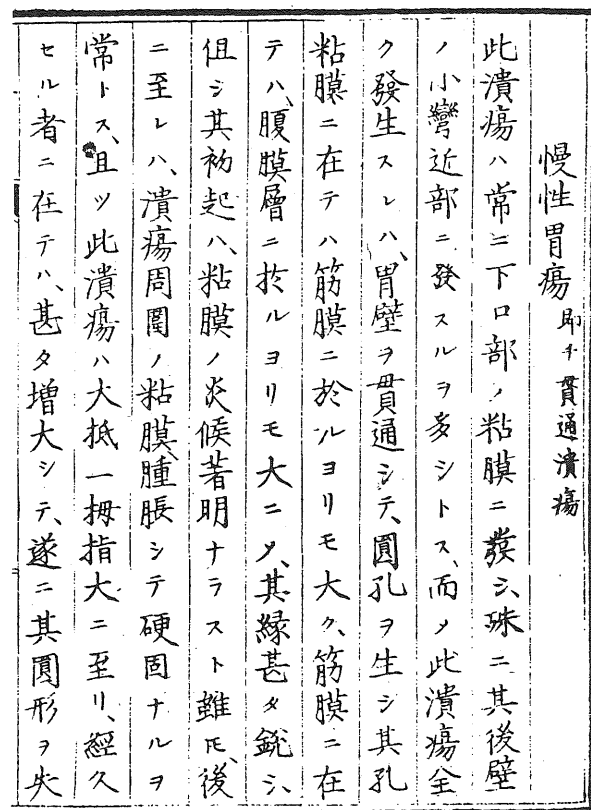 慢性胃瘍 即チ貫通潰瘍
此潰瘍ハ常ニ下口部ノ粘膜ニ發シ、殊ニ其後壁
ノ小彎近部ニ發スルヲ多シトス、而メ此潰瘍全
ク發生スレハ、胃壁ヲ貫通シテ、圓孔ヲ生シ其孔
粘膜ニ在テハ筋膜ニ於ルヨリモ大ク、筋膜ニ在
テハ、腹膜層ニ於ルヨリモ大ニメ、其縁甚タ鋭シ、
但シ其初起ハ、粘膜ノ炎候著明ナラスト雖𪜈、後
ニ至レハ、潰瘍周圍ノ粘膜、腫脹シテ硬固ナルヲ
常トス、且ツ此潰瘍ハ大抵一拇指大ニ至リ、經久
セル者ニ在テハ、甚タ増大シテ、遂ニ其圓形ヲ失